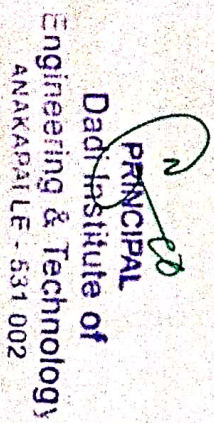 PRINCIPAL
Dadi Institute of
Engineering & Technology
ANAKAPALLE - 531 002